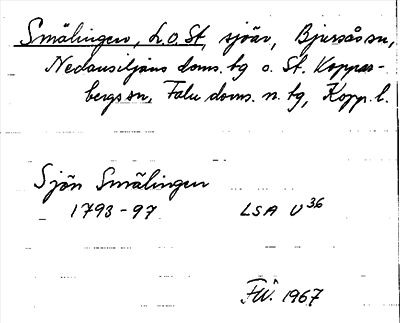 Smälingen, L.o.St, sjöar, Bjursås sn,
Nedansiljans doms. tg o. St. Koppar-
bergs sn, Falu doms. n. tg, Kopp. l.
Sjön Smälingen
1793-97 LSA U 36
FW. 1967